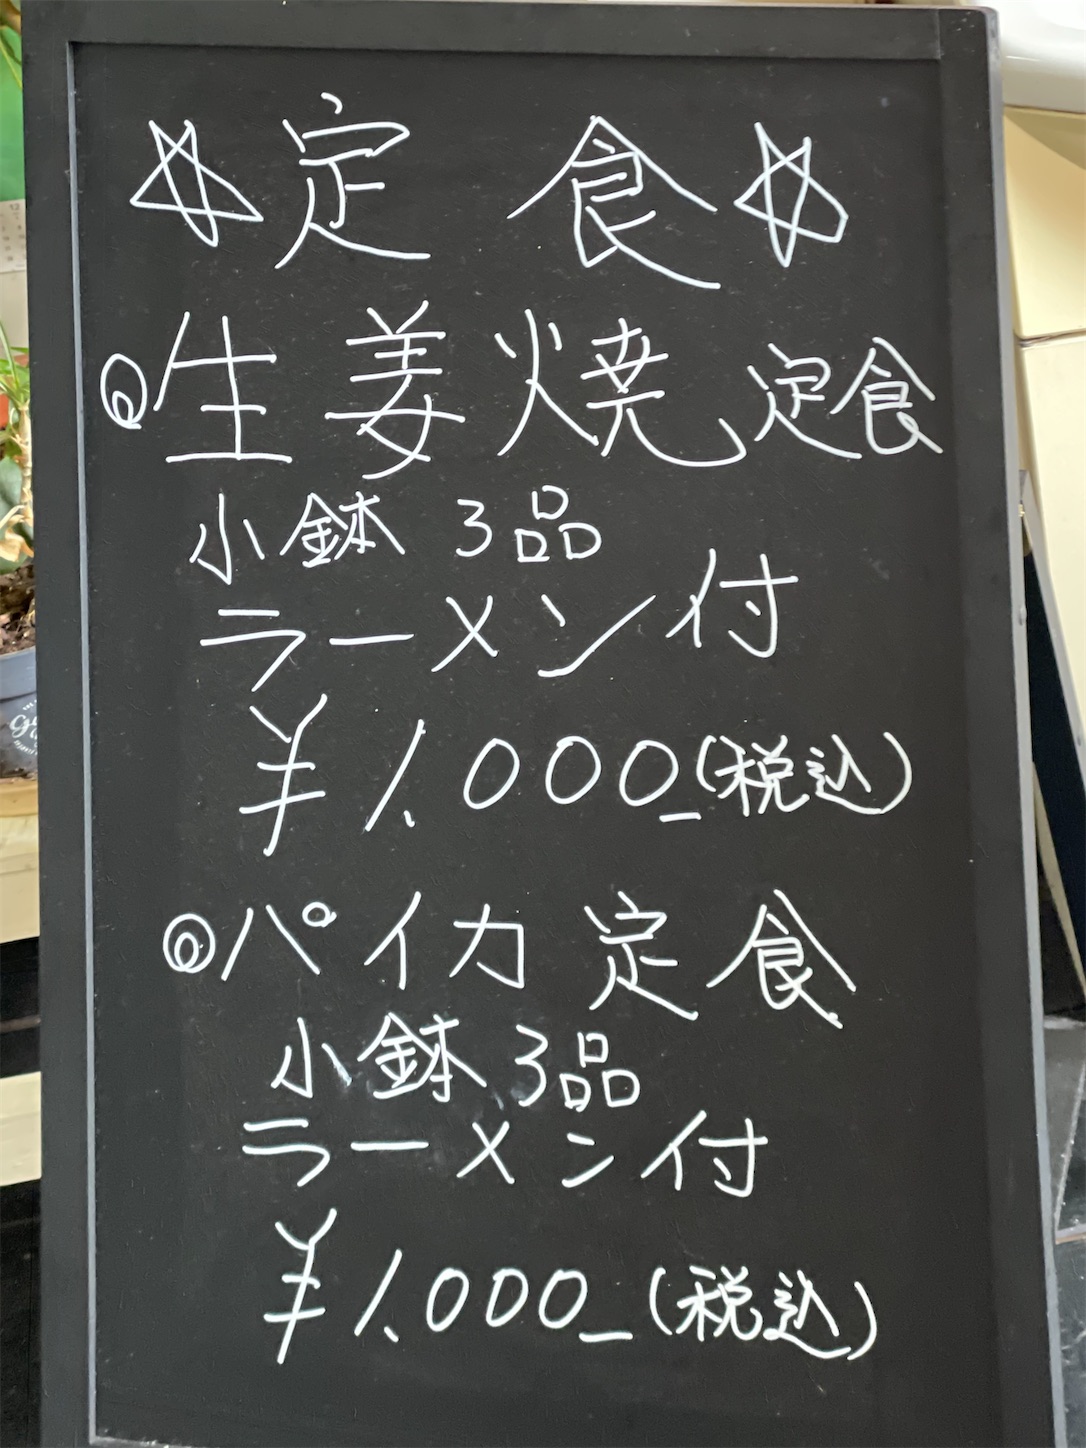 ☆定食☆
◎生姜焼定食
小鉢3品
ラーメン付
¥1.000_(税込)
◎パイカ定食
小鉢3品
ラーメン付
¥1.000_(税込)